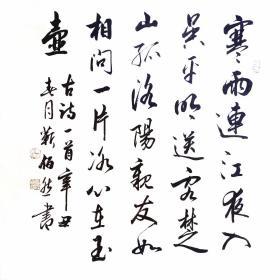 寒雨連江夜入
吴平明送客楚
山孤洛陽親友如
相問一片冰心在玉
壺
古詩一首辛丑
春月靳伯然書